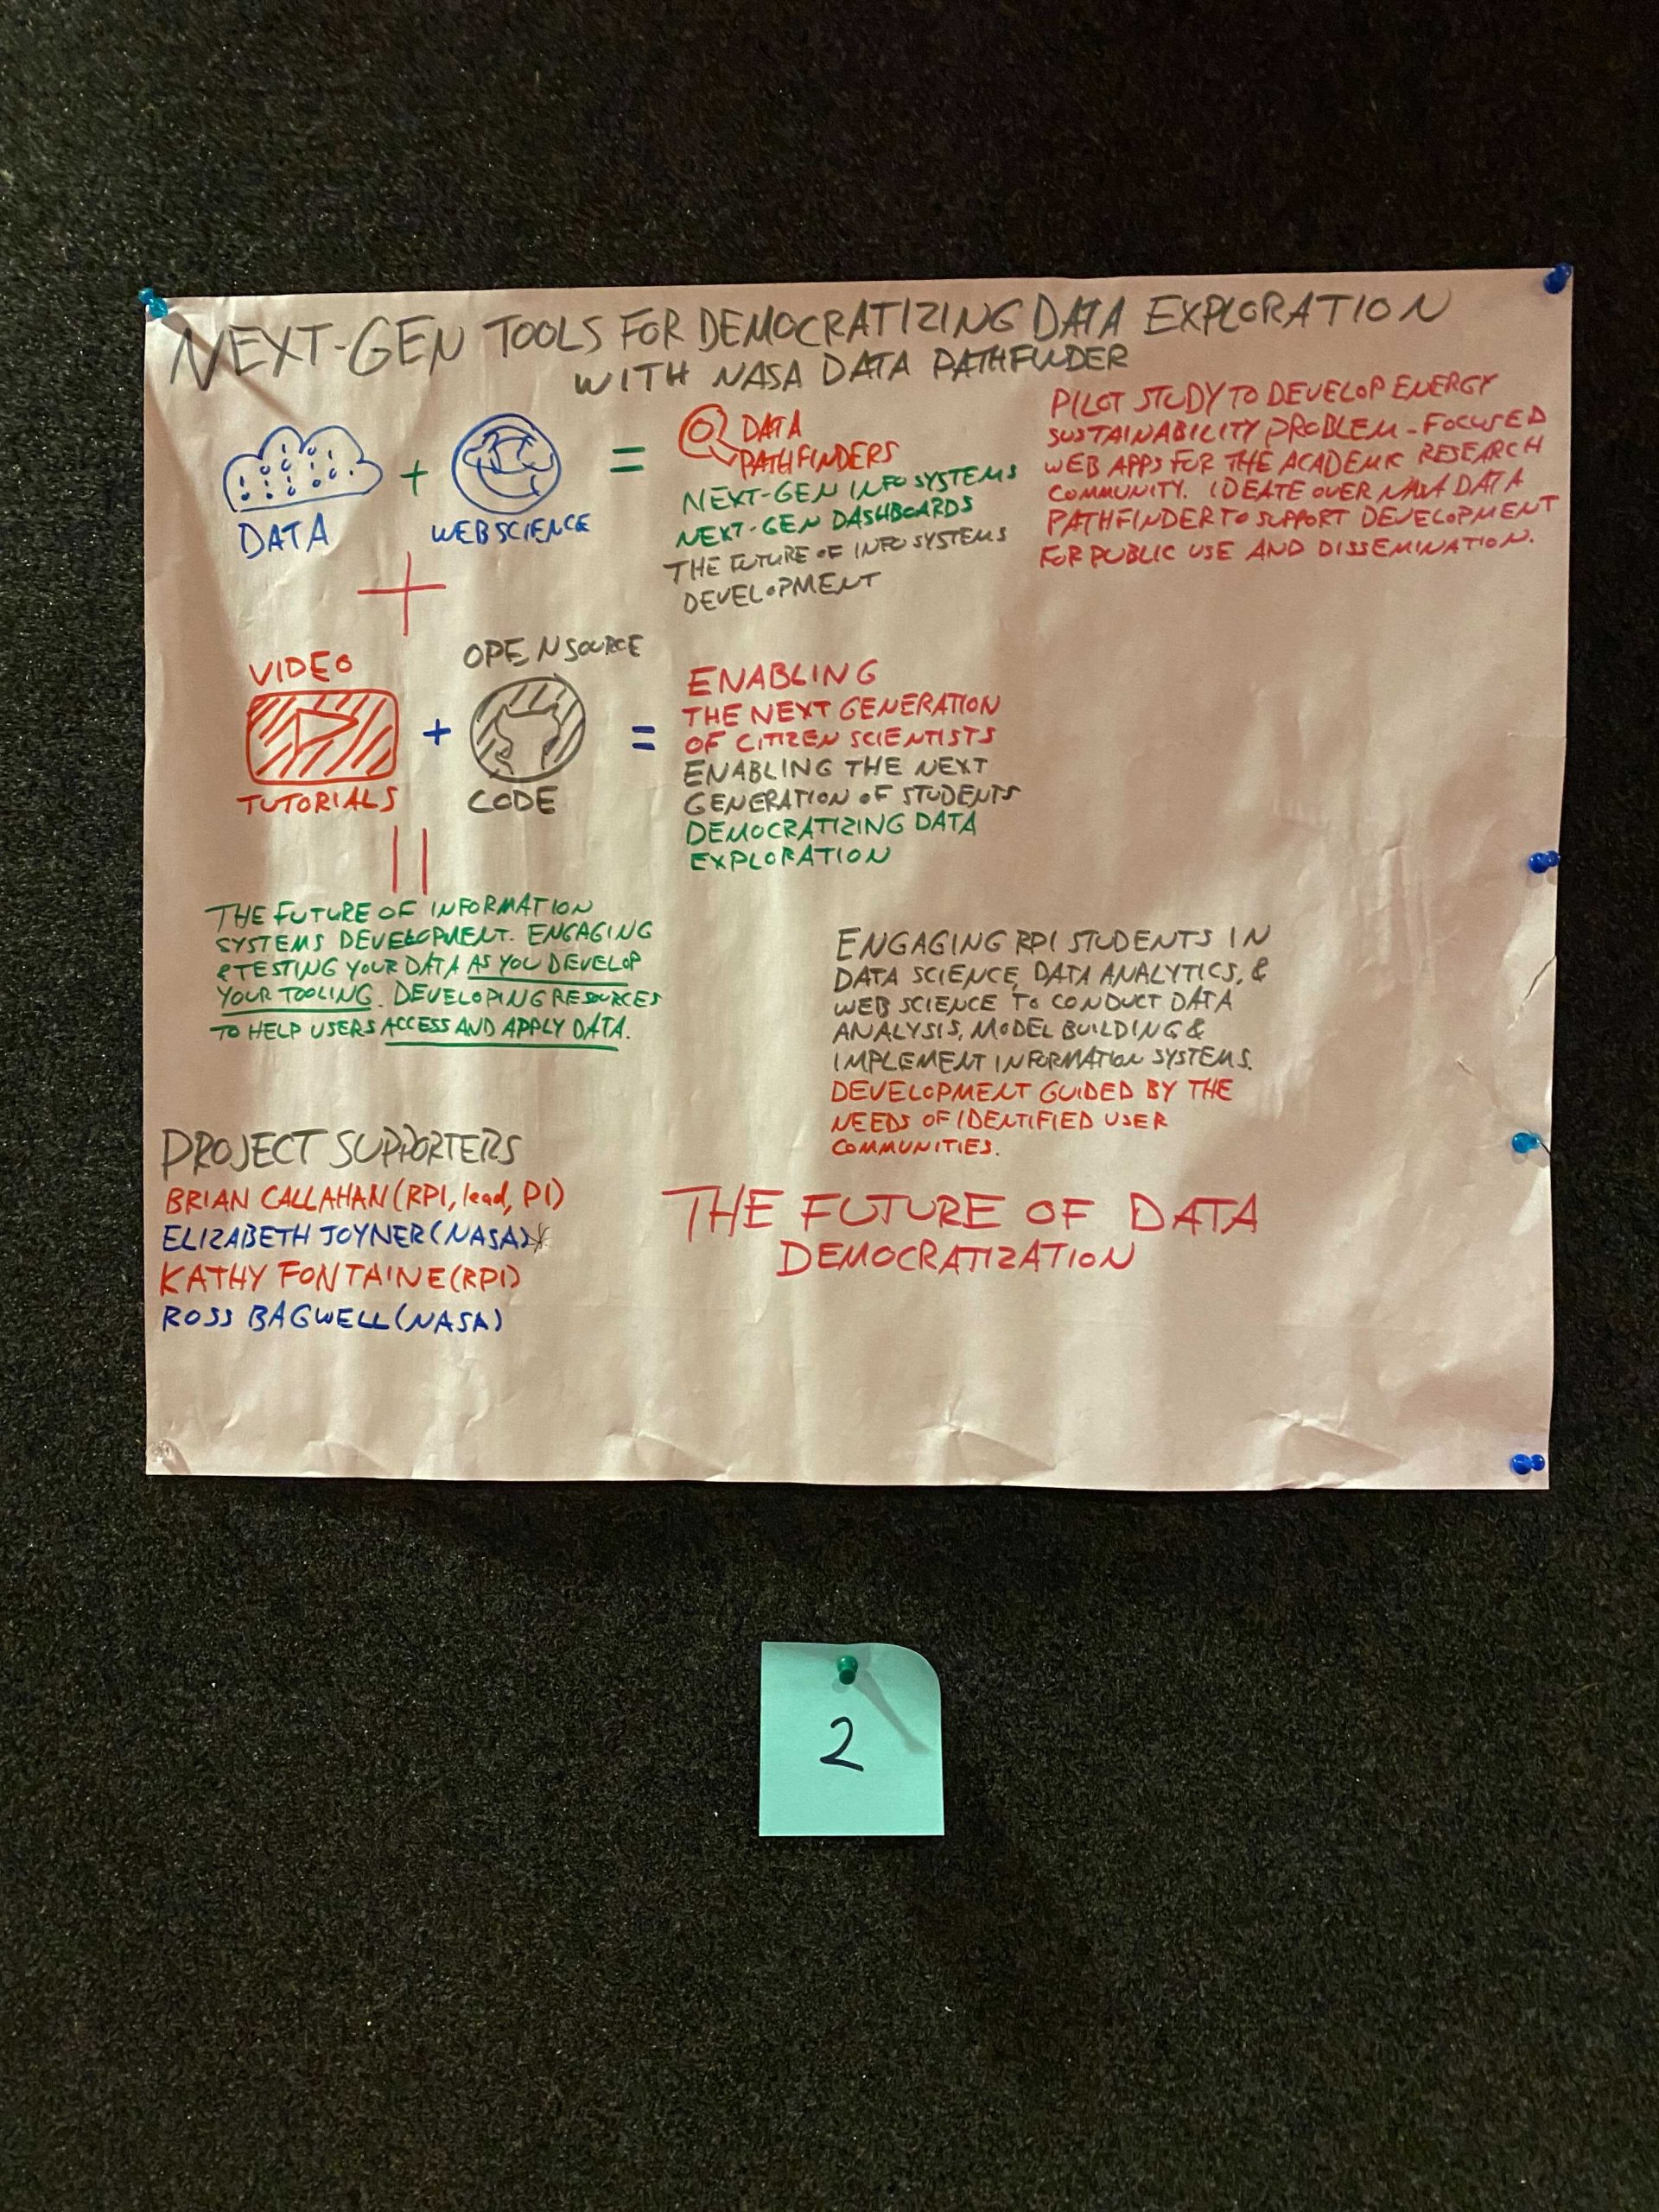 NEXT-GEN TOOLS FOR DEMOCRATIZING DATA EXPLORATION
WITH NASA DATA PATHFINDER
DATA
+
WEB SCIENCE
=
DATA
PATHFINDERS
NEXT-GEN INFO SYSTEMS
NEXT-GEN DASHBOARDS
THE FUTURE OF INFO SYSTEMS
DEVELOPMENT
PILOT STUDY TO DEVELOP ENERGY
SUSTAINABILITY PROBLEM-FOCUSED
WEB APPS FOR THE ACADEMIC RESEARCH
COMMUNITY. IDEATE OVER NASA DATA
PATHFINDER TO SUPPORT DEVELOPMENT
FOR PUBLIC USE AND DISSEMINATION.
+
VIDEO
TUTORIALS
+
OPEN SOURCE
CODE
=
ENABLING
THE NEXT GENERATION
OF CITIZEN SCIENTISTS
ENABLING THE NEXT
GENERATION OF STUDENTS
DEMOCRATIZING DATA
EXPLORATION
=
THE FUTURE OF INFORMATION
SYSTEMS DEVELOPMENT. ENGAGING
& TESTING YOUR DATA AS YOU DEVELOP
YOUR TOOLING. DEVELOPING RESOURCES
TO HELP USERS ACCESS AND APPLY DATA.
ENGAGING RPI STUDENTS IN
DATA SCIENCE, DATA ANALYTICS, &
WEB SCIENCE TO CONDUCT DATA
ANALYSIS, MODEL BUILDING &
IMPLEMENT INFORMATION SYSTEMS.
DEVELOPMENT GUIDED BY THE
NEEDS OF IDENTIFIED USER
COMMUNITIES.
PROJECT SUPPORTERS
BRIAN CALLAHAN (RPI, lead, PI)
ELIZABETH JOYNER (NASA)*
KATHY FONTAINE (RPI)
ROSS BAGWELL (NASA)
THE FUTURE OF DATA
DEMOCRATIZATION
2